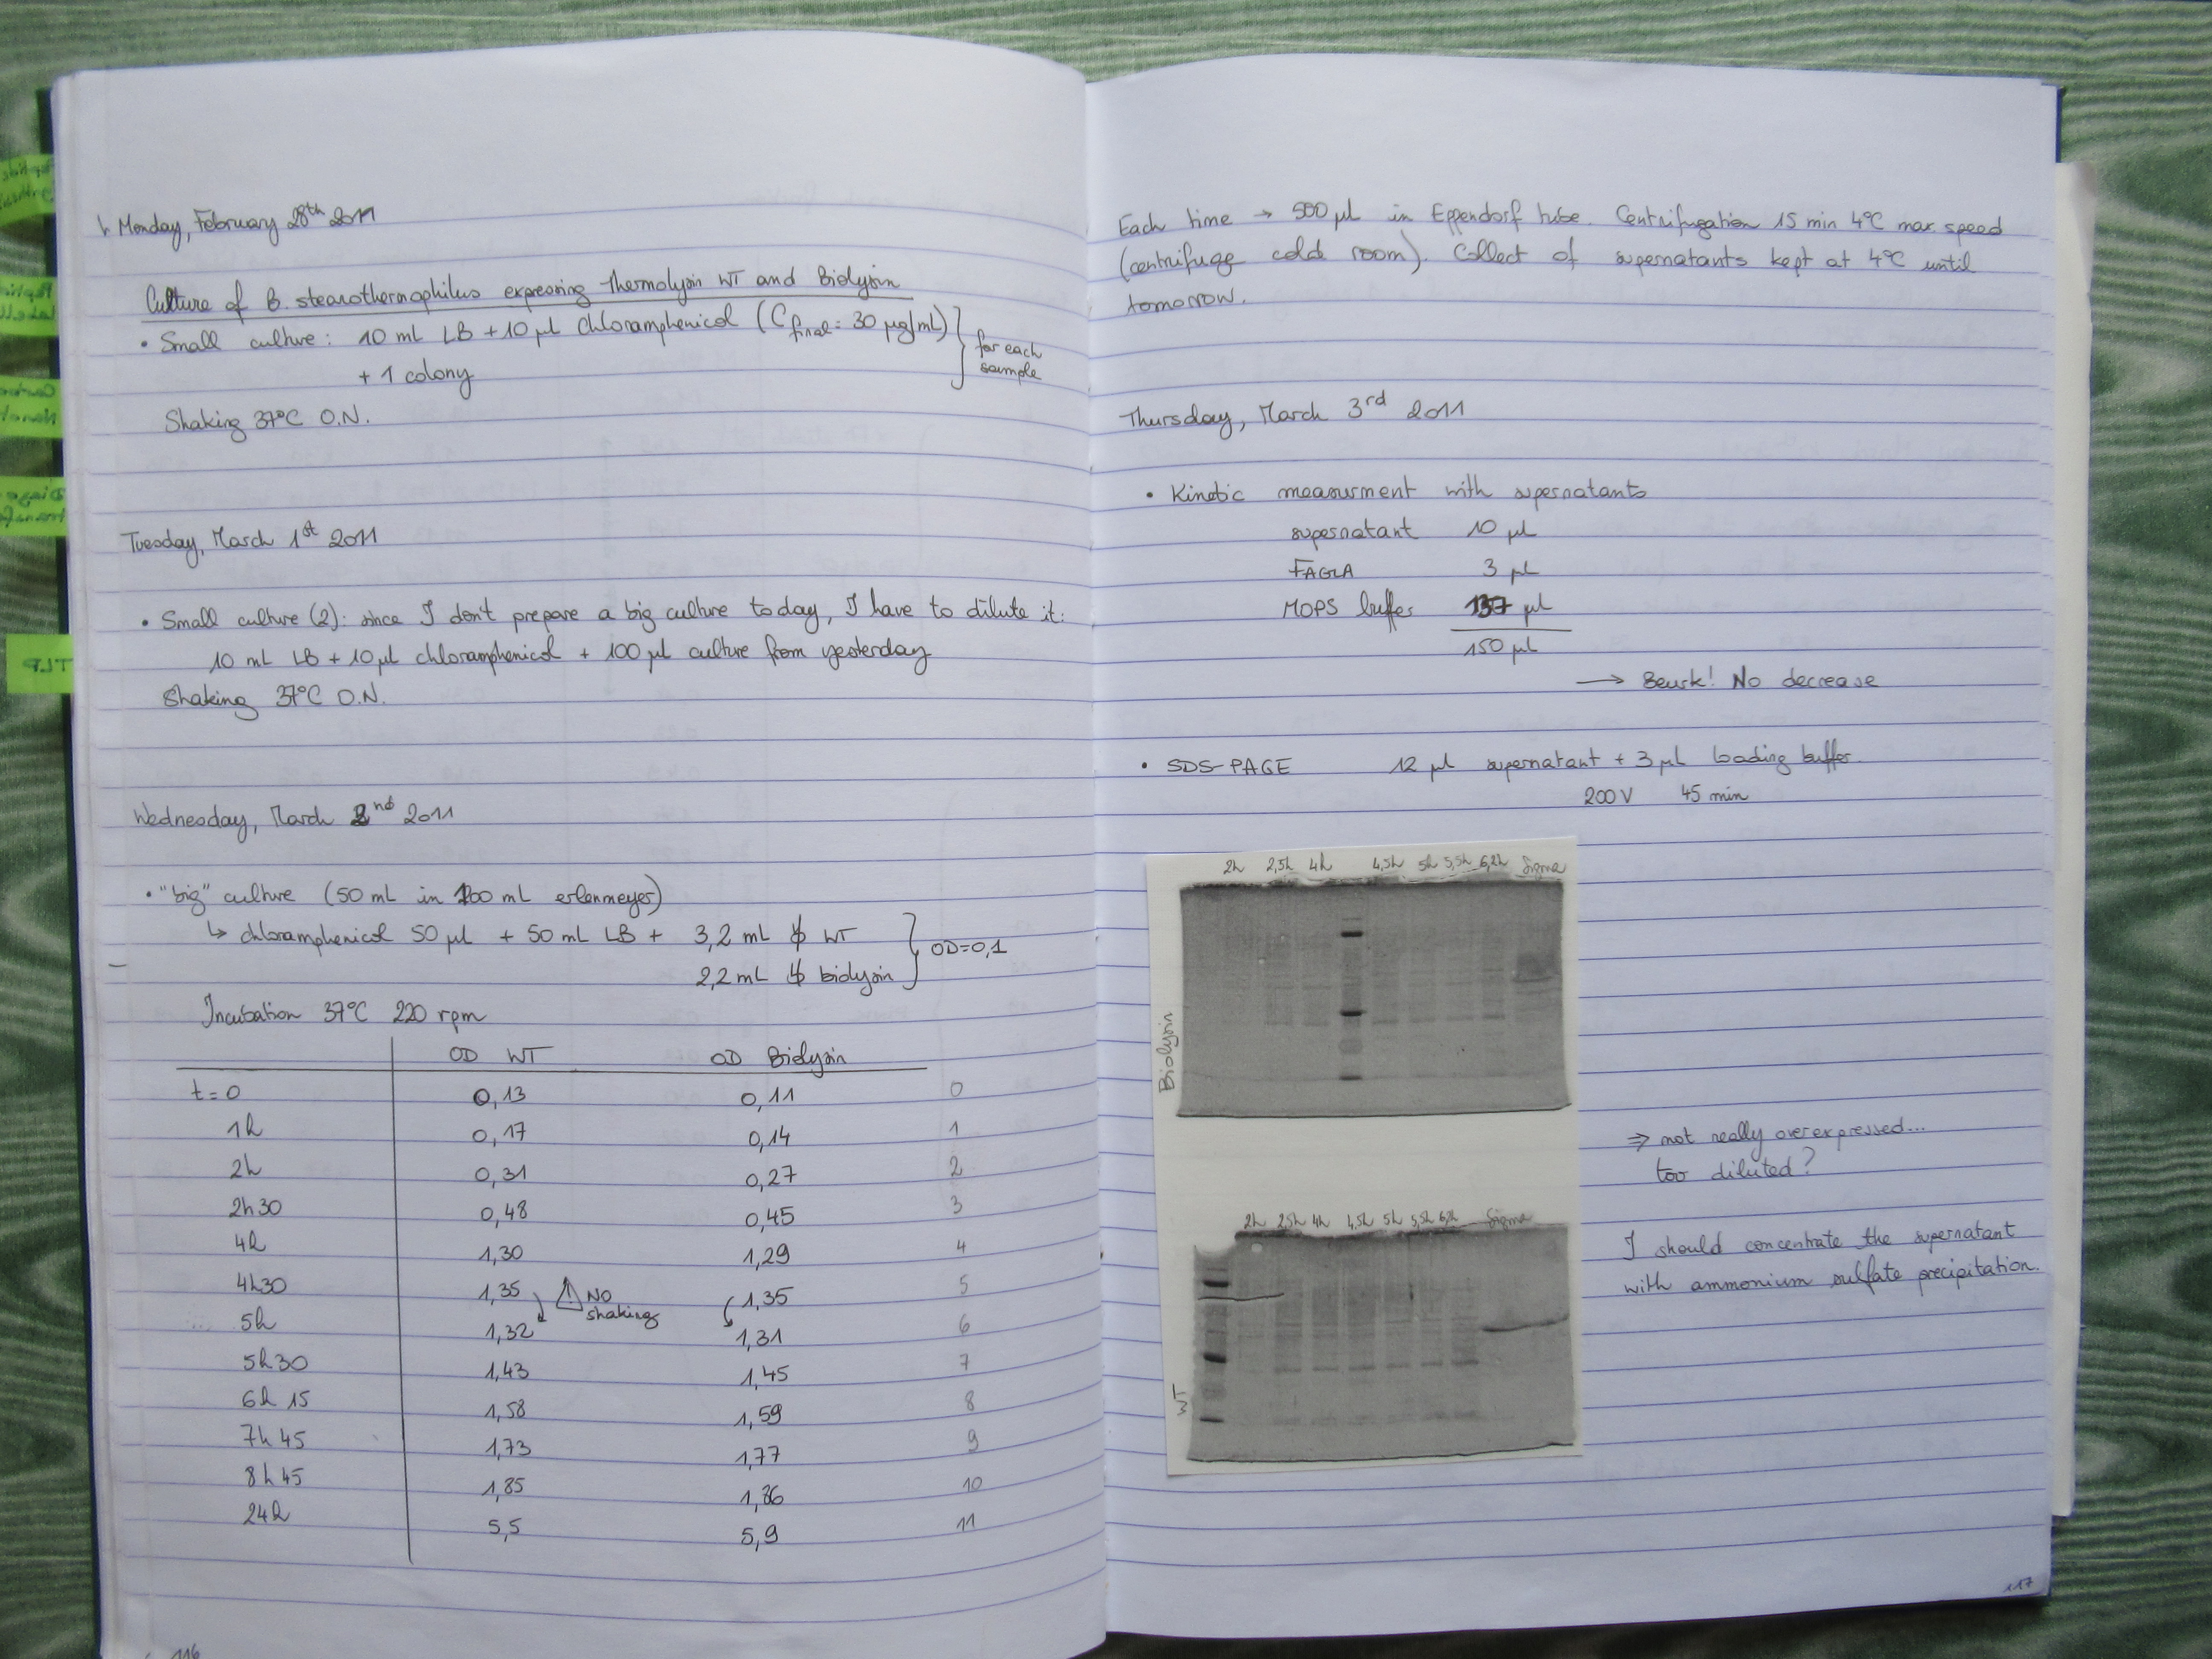 Monday, February 28th 2011
Culture of B. stearothermophilus expressing thermolysin WT and Biolysin
• Small culture : 10 mL LB + 10 µl chloramphenicol (C final = 30 µg/mL)
+ 1 colony
for each
sample
Shaking 37°C O.N.
Tuesday, March 1st 2011
• Small culture (2): since I don't prepare a big culture today, I have to dilute it:
10 mL LB + 10 µl chloramphenicol + 100 µl culture from yesterday
Shaking 37°C O.N.
Wednesday, March 2nd 2011
• "big" culture (50 mL in 100 mL erlenmeyer)
↳ chloramphenicol 50 µl + 50 mL LB + 3,2 mL WT
2,2 mL biolysin
OD=0,1
Incubation 37°C 220 rpm
OD WT OD Biolysin
t=0 0,13 0,11 0
1h 0,17 0,14 1
2h 0,31 0,27 2
2h30 0,48 0,45 3
4h 1,30 1,29 4
4h30 1,35 1,35 5
! NO
shaking
5h 1,32 1,31 6
5h30 1,43 1,45 7
6h15 1,58 1,59 8
7h45 1,73 1,77 9
8h45 1,85 1,86 10
24h 5,5 5,9 11
116
TLP
Each time → 500 µl in Eppendorf tube. Centrifugation 15 min 4°C max speed
(centrifuge cold room). Collect of supernatants kept at 4°C until
tomorrow.
Thursday, March 3rd 2011
• Kinetic measurment with supernatants
supernatant 10 µl
FAGLA 3 µl
MOPS buffer 137 µl
150 µl
→ Beurk! No decrease
• SDS-PAGE 12 µl supernatant + 3 µl loading buffer.
200V 45 min
2h 2,5h 4h 4,5h 5h 5,5h 6,2h Sigma
Biolysin
⇒ not really overexpressed...
too diluted?
2h 2,5h 4h 4,5h 5h 5,5h 6,2h Sigma
WT
I should concentrate the supernatant
with ammonium sulfate precipitation.
117